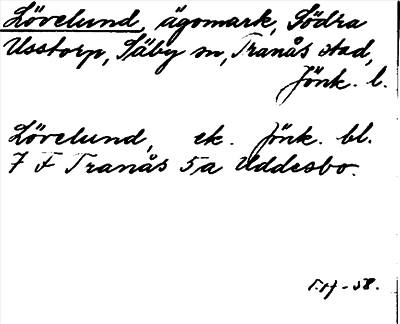 Lövelund, ägomark, Södra
Usstorp, Säby sn, Tranås stad,
Jönk. l.
Lövelund, ek. Jönk. bl.
7 F Tranås 5a Uddesbo.